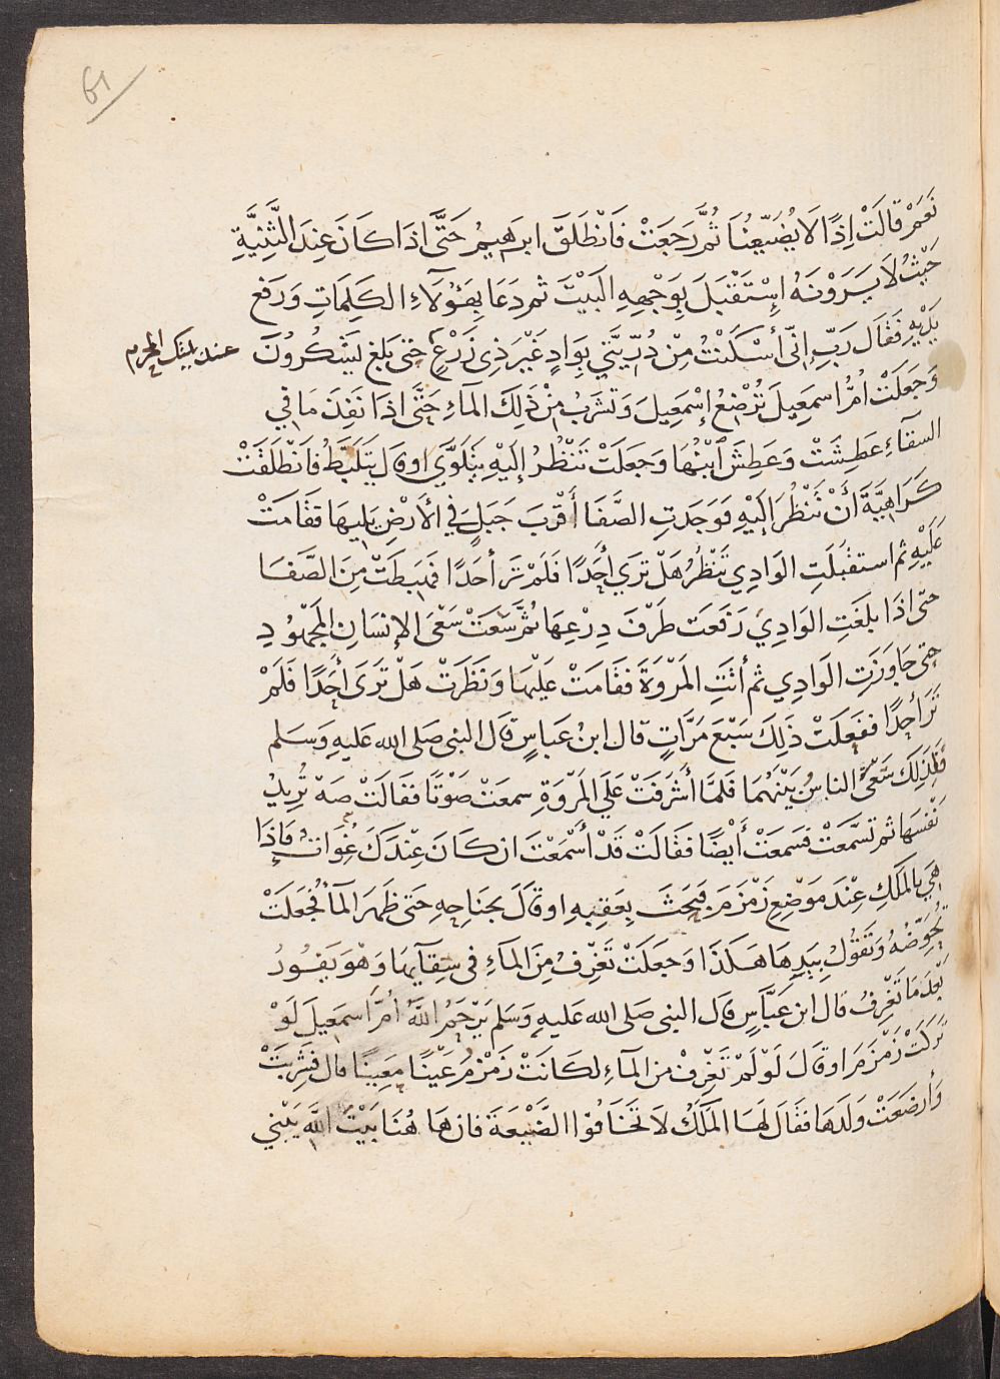 61
نَعَمْ قَالَتْ اِذًا لَا يُضَيِّعُنَا ثُمَّ رَجَعَتْ فَانْطَلَقَ ابرَهِيمُ حَتَّى اذَا كَانَ عِنْدَ الثَّنِيَّةِ
حَيْثُ لَا يَرَوْنَهُ إِسْتَقْبَلَ بِوَجْهِهِ الْبَيْتَ ثم دَعَا بِهَؤُلَآءِ الكَلِمَاتِ وَرَفع
يَدَيْهِ فَقَال رَبِّ إِنّى أَسْكَنْتُ مِنْ ذُرِّيَّتي بِوَادٍ غَيْرَ ذِى زَرْعٍ حتى بَلغ يَشْكُرُونَ
عند بيتك المحرم
وَجَعَلَتْ اُمُّ اسمعِيلَ تُرْضِعُ إِسْمعِيلَ وَتشرَبُ مِنْ ذَلِكَ الْمآءِ حَتَّى اذَا نَفِدَ مَا في
السقآءِ عَطِشَتْ وَعَطِشَ ابْنُهَا وَجَعَلَتْ تَنْظُرُ إِلَيْهِ يَتَلَوَّي اوقال يَتَلَبَّطُ فَانْطَلَقَتْ
كَرَاهِيَّةَ أَنْ تَنْظُرَ إِلَيْهِ فَوَجَدَتِ الصَّفَا أَقْرَبَ جَبَلٍ في الأَرْضِ يَلِيهَا فقَامَتْ
عَلَيْهِ ثم استقبَلَتِ الوَادِي تَنْظُرُ هَلْ تَرَي أَحَدًا فَلَمْ تَرَ أحَدًا فَهَبَطَتْ مِنَ الصَّفَا
حتى اذَا بلغَتِ الوَادِيَ رَفَعَت طَرْفَ دِرْعِهَا ثُمَّ سَعَتْ سَعْىَ الإنْسَانِ المَجْهُودِ
حتى جَاوَزَتِ الوَادِي ثم أَتَتِ المَرْوَةَ فقَامَتْ عَلَيْهَا وَنَظَرَتْ هَلْ تَرَى أَحَدًا فَلَمْ
تَرَ أَحَدًا ففَعَلَتْ ذَلِكَ سَبْعَ مَرَّاتٍ قَال ابنُ عَباسٍ قال النبى صَلى الله عَليهِ وَسَلم
فَلِذَلِكَ سَعَى الناسُ بَيْنَهُمَا فَلمَّا أَشْرَفَتْ عَلَي المَرْوَةِ سمعَتْ صَوْتًا فقَالَتْ صَهْ تُرِيدُ
نَفْسَهَا ثم تسمَّعَتْ فسَمعَتْ أَيْضًا فقَالَتْ قَدْ أَسْمَعْتَ ان كَانَ عِنْدَكَ غُِوَاثٌ فَاِذَا
هِيَ بالمَلَكِ عِنْدَ مَوْضِعِ زَمْزَمَ فبَحَثَ بِعَقِبِهِ اوقَالَ بجنَاحِهِ حَتى ظَهَرَ المآءُ فجَعَلَتْ
تُحَوِّضُهُ وَتَقُولُ بِيَدِهَا هَكَذَا وَجَعَلَتْ تَغْرِفُ مِنَ المَآءِ في سِقَآيِهَا وَهْوَ يَفُورُ
بَعْدَ مَا تَغْرِفُ قال ابن عَبَّاسٍ قال النبى صَلى الله عَليهِ وَسَلم يَرْحَمُ اللَّهُ أُمَّ اسمَعِيلَ لَوْ
تَرَكَتْ زَمْزَمَ اوقَالَ لَوْ لَمْ تَغْرِفْ من المآءِ لكَانَتْ زَمْزمُ عَيْنًا مَعِينًا قال فشَرِبَتْ
وَأَرضَعَتْ وَلَدَهَا فقَالَ لَهَا المَلَكُ لَا تَخَافُوا الضَّيْعَةَ فان هَا هُنَا بَيْتَ اللَّهِ يَبْنِي